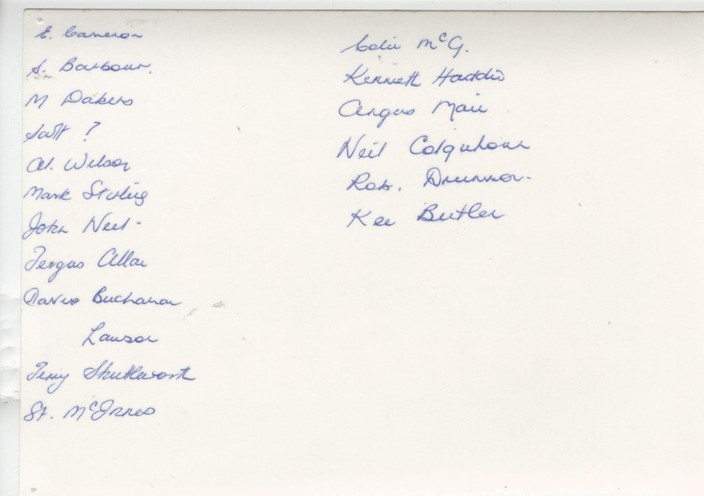 E. Cameron
A. Barbour.
M Dakers
?
Al. Wilson
Mark Stirling
John Neil-
Fergus Allan
David Buchanan
Lawson
Terry Shuttleworth
St. McInnes
Colin McG.
Kenneth Haddio
Angus Mair
Neil Colquhoun
Rob. Drummon-
Ken Butler